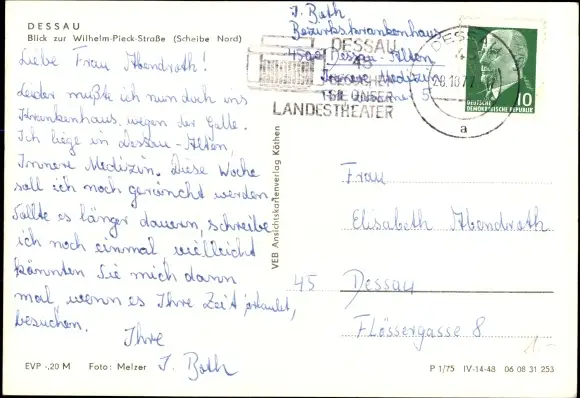 DESSAU
Blick zur Wilhelm-Pieck-Straße (Scheibe Nord)
Liebe Frau Abendroth!
Leider mußte ich nun doch ins
Krankenhaus, wegen der Galle.
Ich liege in Dessau-Alten,
Innere Medizin. Diese Woche
soll ich noch geröntgt werden.
Sollte es länger dauern, schreibe
ich noch einmal, vielleicht
könnten Sie mich dann
mal, wenn es Ihre Zeit erlaubt,
besuchen.
Ihre
I. Both
EVP -,20 M Foto: Melzer
VEB Ansichtskartenverlag Köthen
I. Both
Bezirkskrankenhaus
4500 Dessau-Alten
Innere Medizin
5
DESSAU
45
UNSER
LANDESTHEATER
DESSAU
45
a
DEUTSCHE
DEMOKRATISCHE REPUBLIK
10
Frau
Elisabeth Abendroth
45 Dessau
Flössergasse 8
1.-
P 1/75 IV-14-48 06 08 31 253